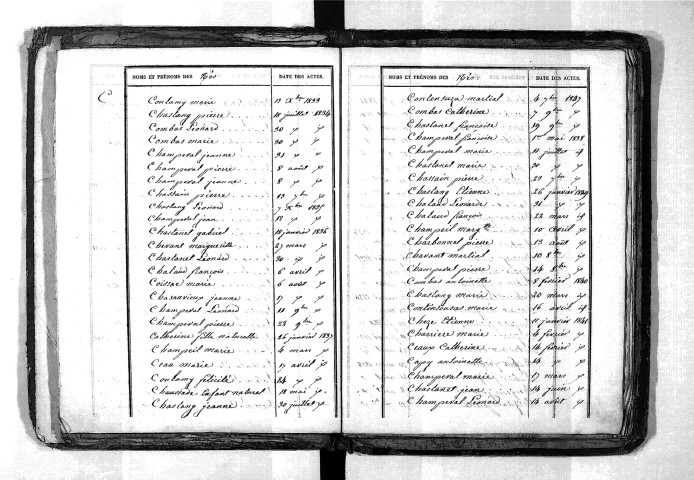 NOMS ET PRÉNOMS DES Nés DATE DES ACTES.
C
Coulamy marie 12 Xbre 1833
Chaslang pierre 18 juillet 1834
Combas Léonard 30 " "
Combas marie 30 " "
Champeval jeanne 31 " "
Champeval pierre 8 août "
Champeval jeanne 8 " "
Chassain pierre 13 7bre "
Chaslang Léonard 7 Xbre 1835
Champeval jean 12 " "
Chastanet gabriel 18 janvier 1836
Chevant marguerite 27 mars "
Chastanet Léonard 30 " "
Chalaud françois 6 avril "
Coissac marie 6 août "
Chasauvieux jeanne 17 " "
Champeval Léonard 11 9bre "
Champeval pierre 22 9bre "
Catherine fille naturelle 26 janvier 1837
Champeil marie 4 mars "
Ceau marie 17 avril "
Coulamy félicité 24 " "
Chaussade Enfant naturel 18 mai "
Chaslang jeanne 30 juillet "
NOMS ET PRÉNOMS DES Nés DATE DES ACTES.
Contensuza martial 4 7bre 1837
Combas Catherine 7 9bre "
Chastanet françoise 19 9bre "
Champeval françoise 1er mai 1838
Champeval marie 11 juillet "
Chastanet marie 20 " "
Chassain pierre 23 7bre "
Chaslang Etienne 26 janvier 1839
Chalaud Léonarde 31 " "
Chalaud françois 22 mars "
Champeil margte 10 avril "
Charbonnel pierre 13 août "
Chavant martial 10 8bre "
Champeval pierre 14 8bre "
Combas antoinette 8 février 1840
Chaslang marie 20 mars "
Contensousas marie 16 avril "
Chèze Etienne 11 janvier 1841
Charrière marie 4 février "
Ceaux Catherine 14 février "
Capy antoinette 24 " "
Champeval marie 17 mars "
Chastanet jean 14 juin "
Champeval Léonard 14 août "